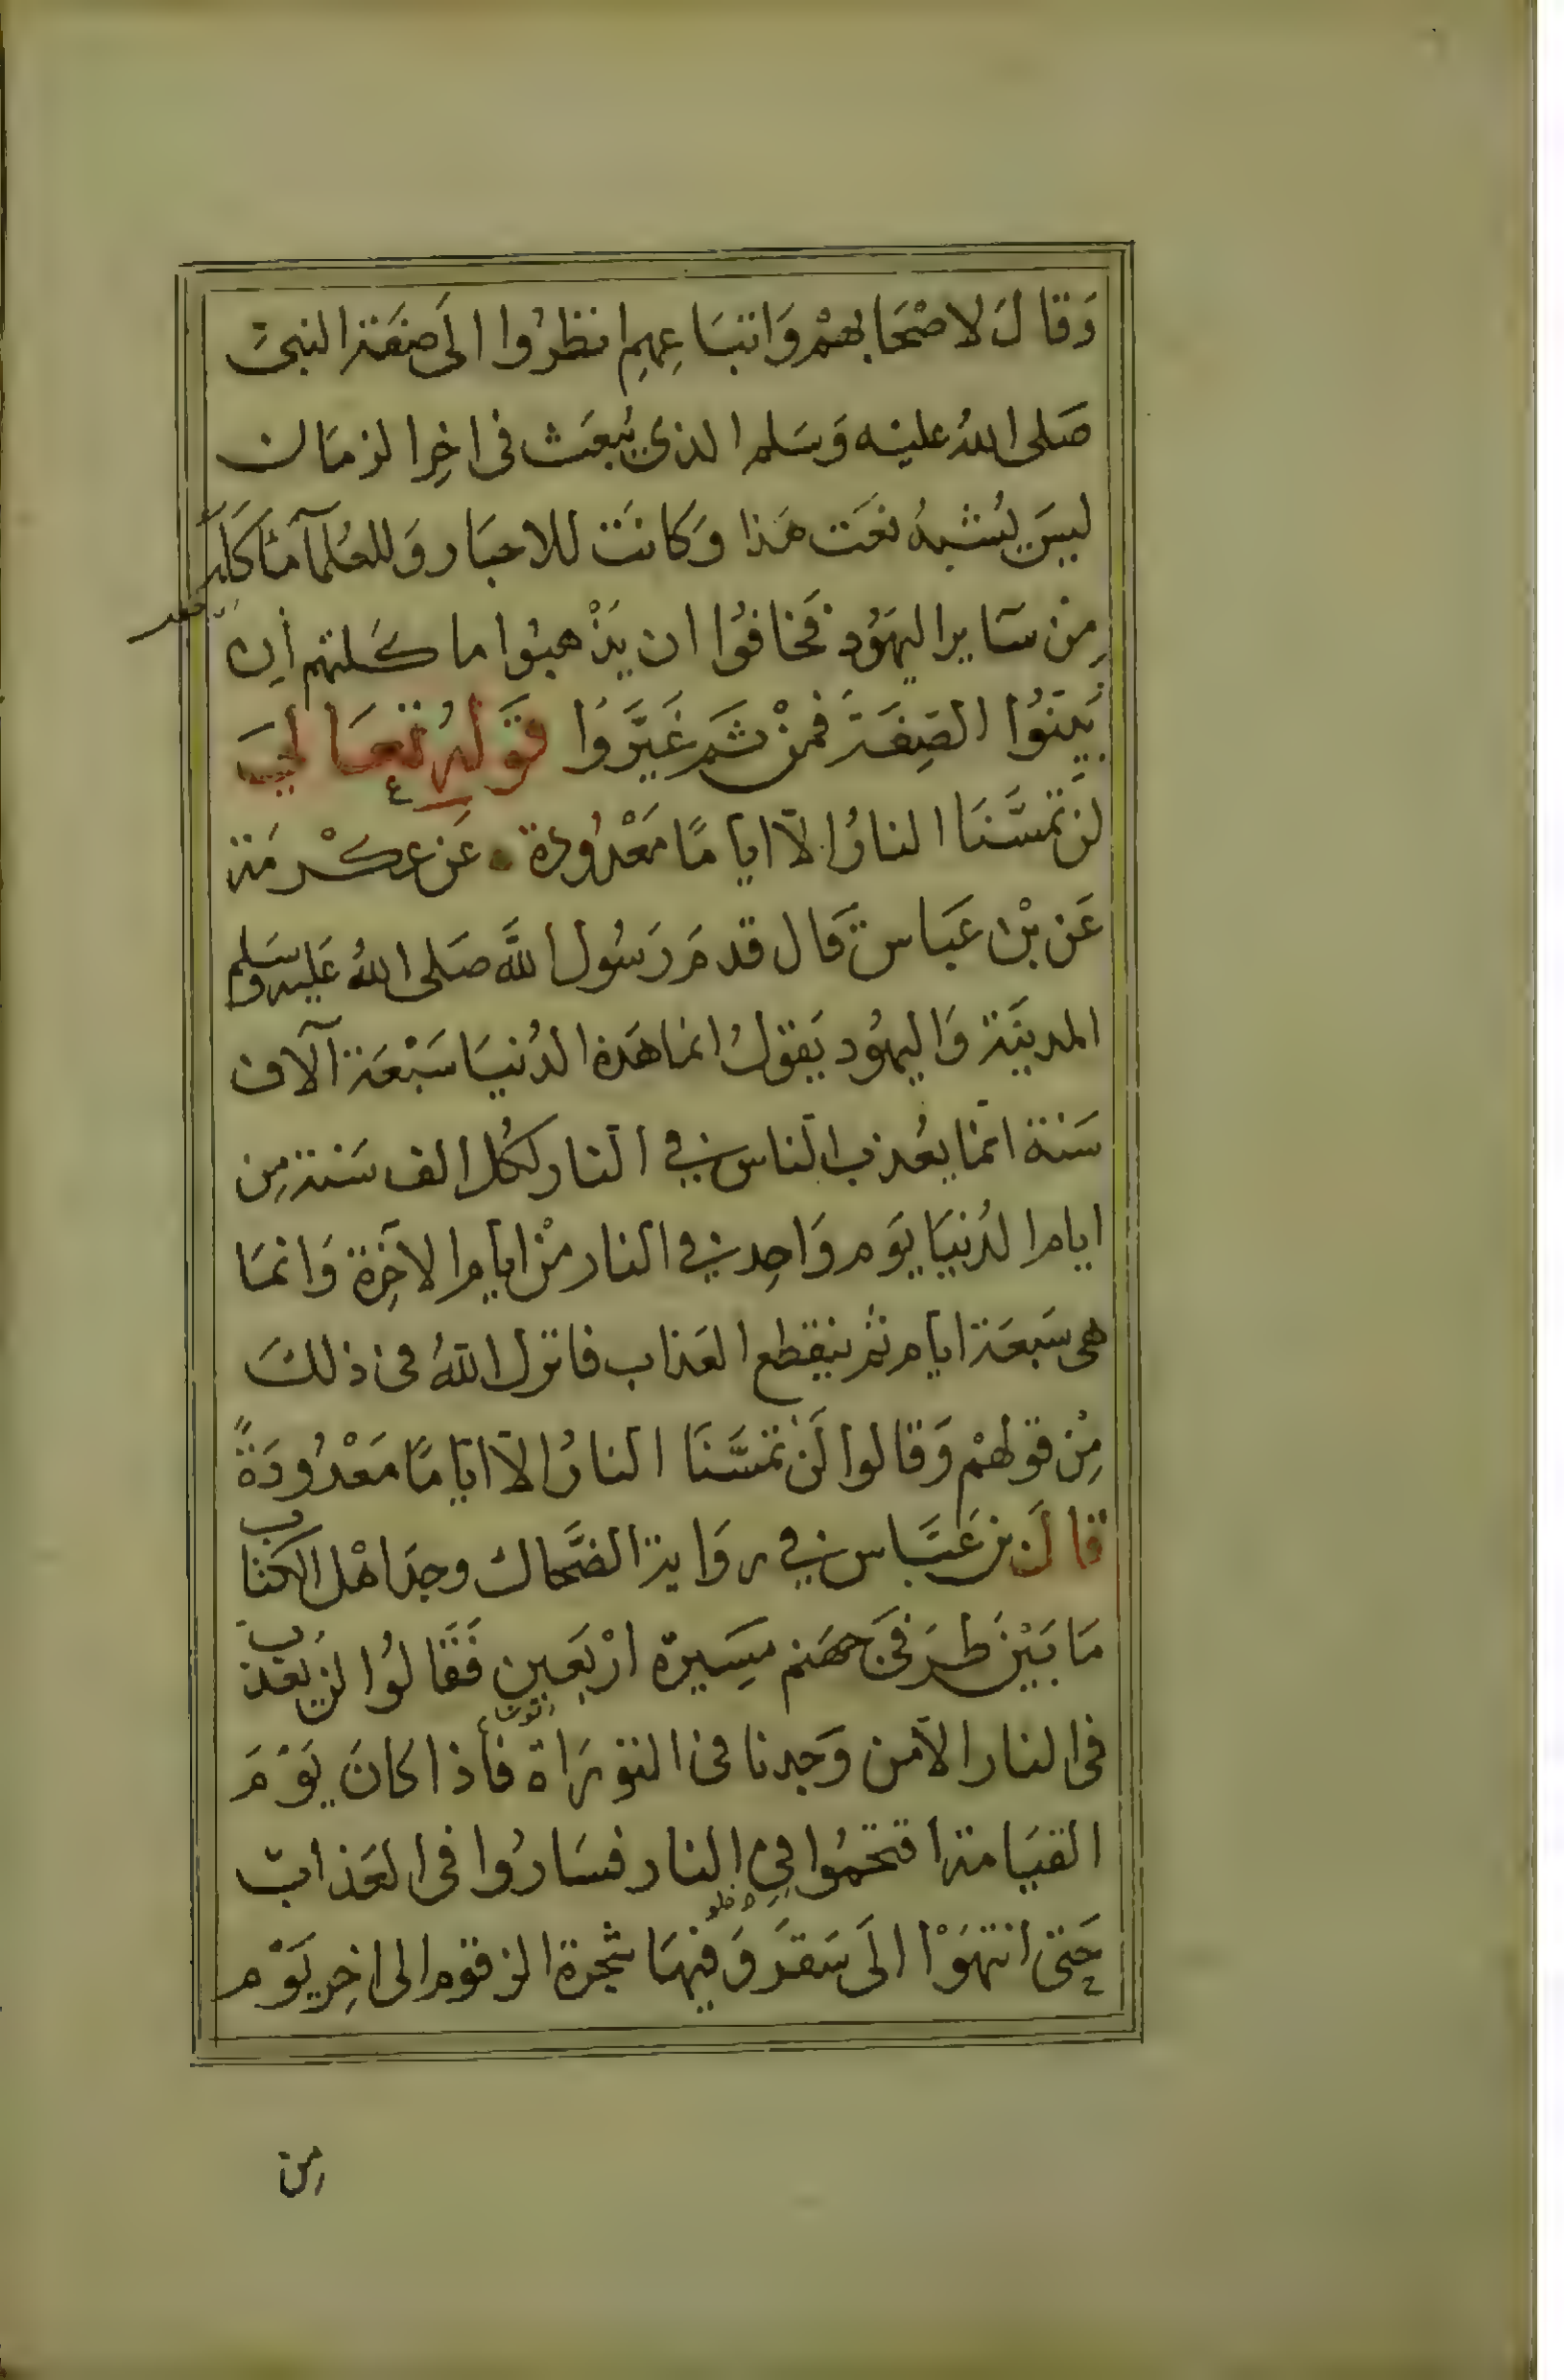 وَقَالَ لاصْحَابهمْ وَاتبَاعِهِم انظرُوا الَى صفَة النبيّ
صَلى اللهُ عليْه وَسَلم الذي يُبعَث فى اخِر الزمَان
ليسَ يُشبهُ نعَت هَذا وَكانَت للاحبَار وَللعُلمآ مَأكَلَة
مِن سَاير اليهَوُد فَخافوُا ان يَذْهبُوا ماكَلتهم اِن
بَينوُا الصِفَةَ فمنْ ثَم غَيَّرَوُا قوَلهُ تعَالىَ
لَن تمسَّنَا النارُ الّا اياَمًا مَعْدُودة عَن عِكْرمَة
عَن بْن عَبَاس قَال قدمَ رَسُول اللَّه صَلى اللهُ عَليه وسَلم
المدينَة وَاليهُود يَقوَلُ انما هَذة الدُنيَا سَبْعَة آلاف
سَنة اتما يعُذب الناس في النار لكُل الف سَنة مِن
ايام الدُنيَا يوَم وَاحِد في النار منْ ايام الآخِرَة وَانمَا
هى سَبعَة ايام ثم ينقطع العَذاب فانزل اللّهُ فى ذلكَ
مِنْ قولهمْ وَقالوا لَنْ تمسَّنَا النارُ الّا ايَّامًا مَعْدُودَةً
قالَ بن عَبَّاس في روَاية الضَّحاك وجَد اهْل الكتَاب
مَا بَيْن طرَفىَ جهَنم مسِيرة ارْبَعِين فَقَالوُا لن يعُذب
فى النار الّا من وَجدنا فى التورَاة فأذا كانَ يَوْمَ
القيَامة اقتحمُوا فِي النار فسَارُوا فى العَذاب
حَتى انتهَوْا الَى سَقرَ وَفيهَا شجرة الزقوم الى اخِر يَوْم
مِن